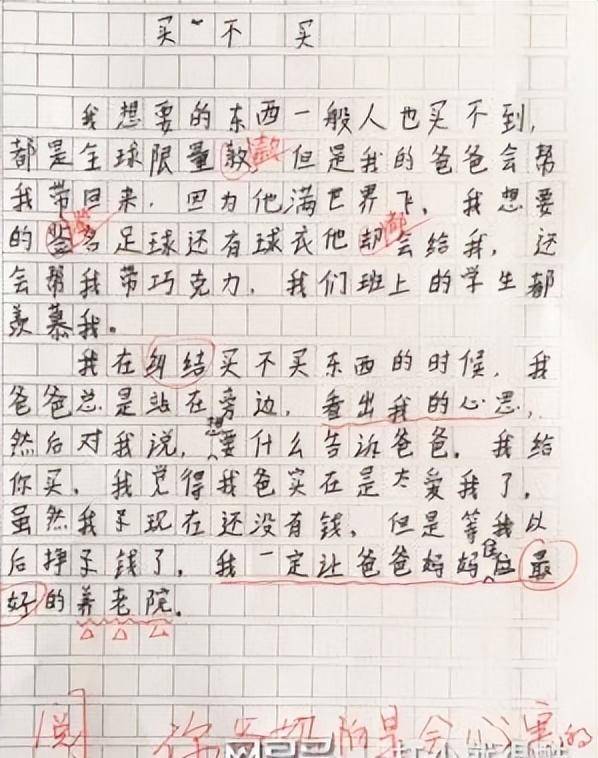 买不买
我想要的东西一般人也买不到,
都是全球限量款 但是我的爸爸会帮
我带回来. 因为他满世界飞. 我想要
的签名足球还有球衣他都会给我, 还
会帮我带巧克力. 我们班上的学生都
羡慕我。
我在纠结买不买东西的时候, 我
爸爸总是站在旁边, 看出我的心思,
然后对我说, 想要什么告诉爸爸. 我给
你买. 我觉得我爸实在是太爱我了.
虽然我现在还没有钱, 但是等我以
后挣钱了, 我一定让爸爸妈妈住最
好的养老院.
阅